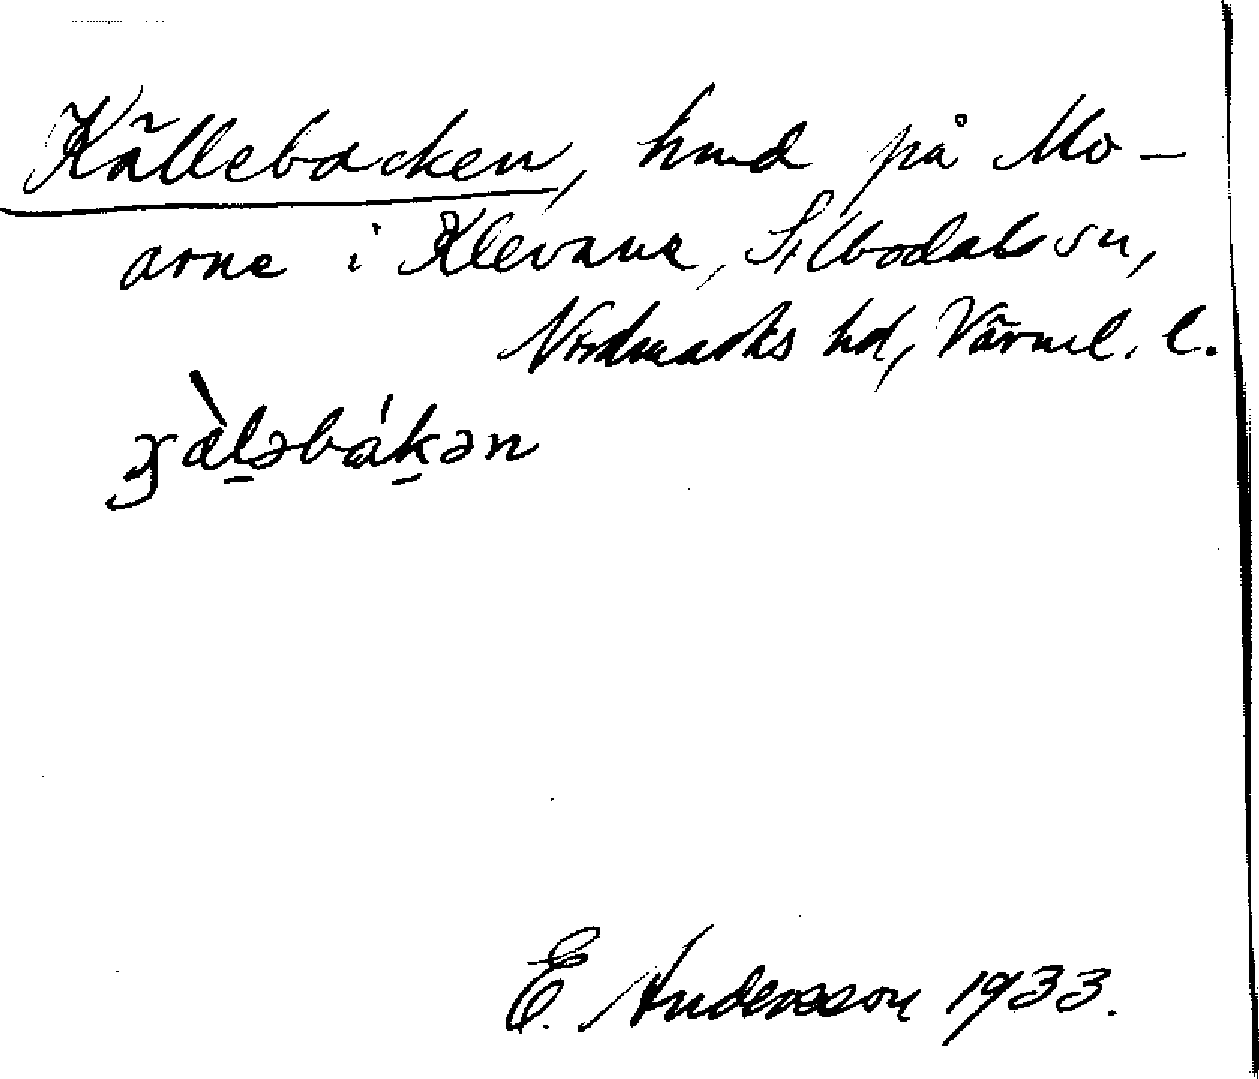 Källebacken, hmd på Mo-
arne i Klevane, Silbodals sn,
Nordmarks hd, Värml. l.
E. Andersson 1933.